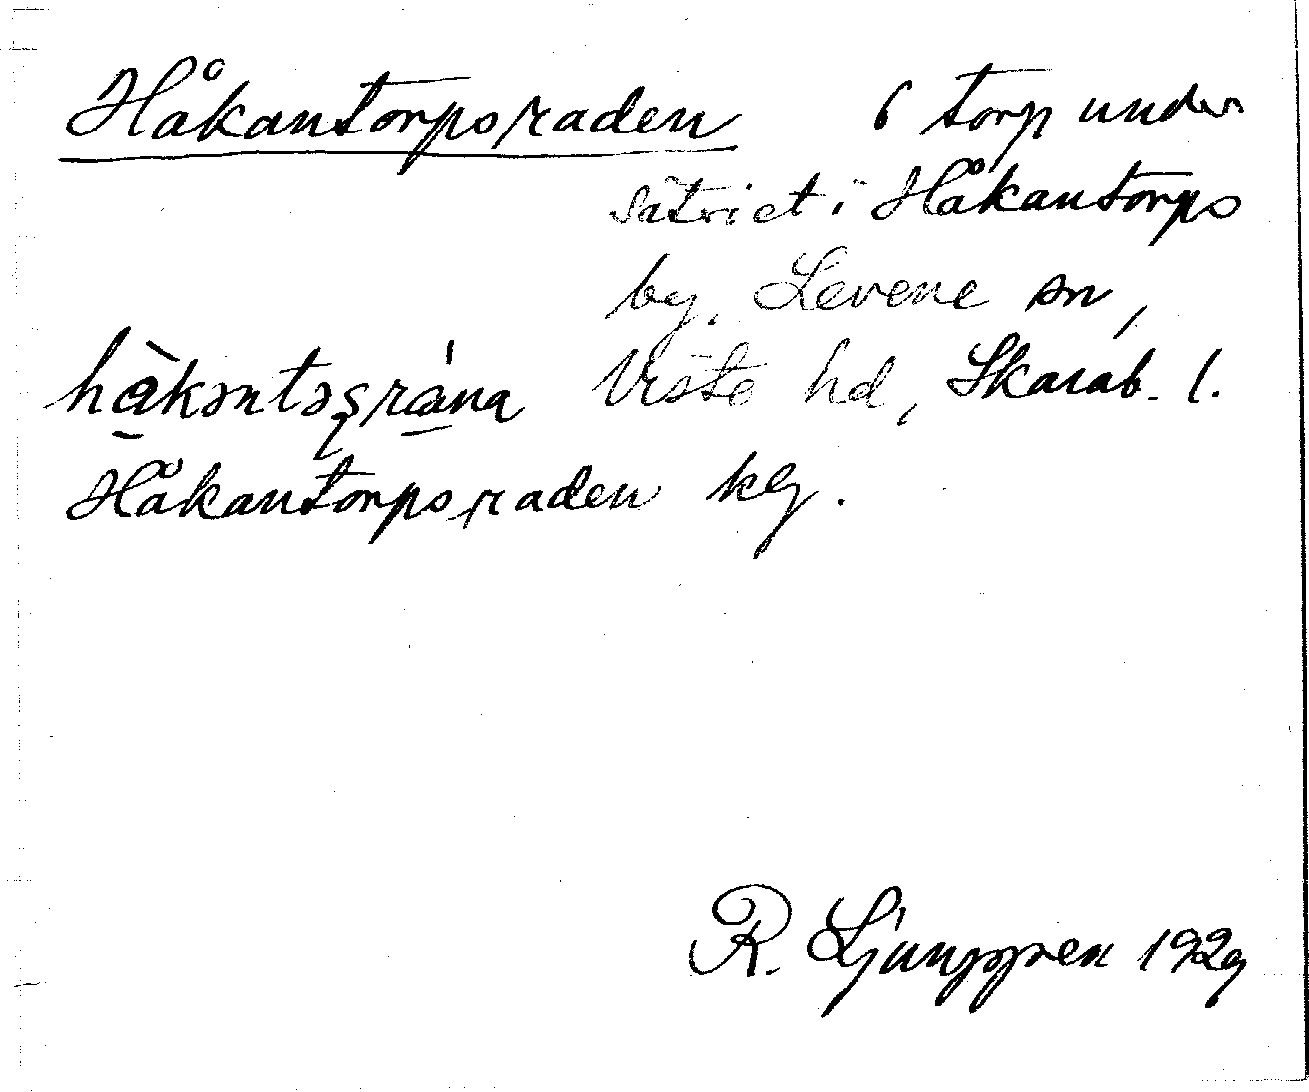 Håkantorpsraden 6 torp under
säteriet i Håkantorps
by, Levene sn,
Viste hd, Skarab. l.
hàkəntəşrána
Håkantorpsraden kly.
R. Ljunggren 1929